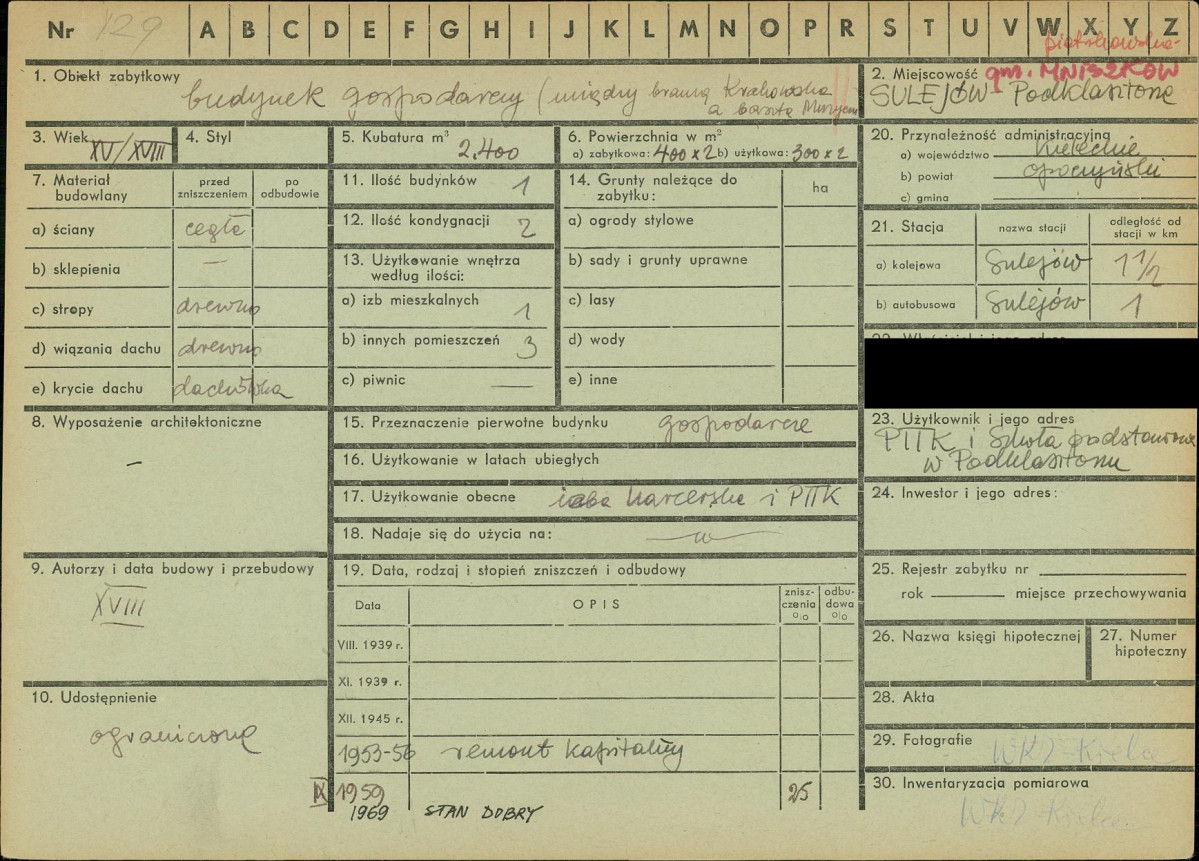 Nr 129 A B C D E F G H I J K L M N O P R S T U V W X Y Z
piotrkowskie
1. Obiekt zabytkowy
budynek gospodarczy (między bramą Krakowską
a basztą
2. Miejscowość gm. MNISZKÓW
SULEJÓW - Podklasztorze
3. Wiek XV/XVIII
4. Styl
5. Kubatura m³
2.400
6. Powierzchnia w m²
a) zabytkowa: 400 x 2 b) użytkowa: 300 x 2
7. Materiał budowlany
przed zniszczeniem
po odbudowie
a) ściany cegła
b) sklepienia —
c) stropy drewno
d) wiązania dachu drewno
e) krycie dachu dachówka
8. Wyposażenie architektoniczne
—
9. Autorzy i data budowy i przebudowy
XVIII
10. Udostępnienie
ograniczone
11. Ilość budynków 1
12. Ilość kondygnacji 2
13. Użytkowanie wnętrza
według ilości:
a) izb mieszkalnych 1
b) innych pomieszczeń 3
c) piwnic —
14. Grunty należące do
zabytku:
ha
a) ogrody stylowe
b) sady i grunty uprawne
c) lasy
d) wody
e) inne
15. Przeznaczenie pierwotne budynku gospodarcze
16. Użytkowanie w latach ubiegłych
17. Użytkowanie obecne izba harcerska i PTTK
18. Nadaje się do użycia na: — w —
19. Data, rodzaj i stopień zniszczeń i odbudowy
Data
OPIS
znisz-
czenia
%
odbu-
dowa
%
VIII. 1939 r.
XI. 1939 r.
XII. 1945 r.
1953-56 remont kapitalny
IX 1959 25
1969 STAN DOBRY
20. Przynależność administracyjna
a) województwo kieleckie
b) powiat opoczyński
c) gmina
21. Stacja
nazwa stacji
odległość od
stacji w km
a) kolejowa Sulejów 1 1/2
b) autobusowa Sulejów 1
23. Użytkownik i jego adres
PTTK i Szkoła podstawowa
w Podklasztorzu
24. Inwestor i jego adres:
25. Rejestr zabytku nr
rok miejsce przechowywania
26. Nazwa księgi hipotecznej
27. Numer
hipoteczny
28. Akta
29. Fotografie WKZ-Kielce
30. Inwentaryzacja pomiarowa
WKZ-Kielce